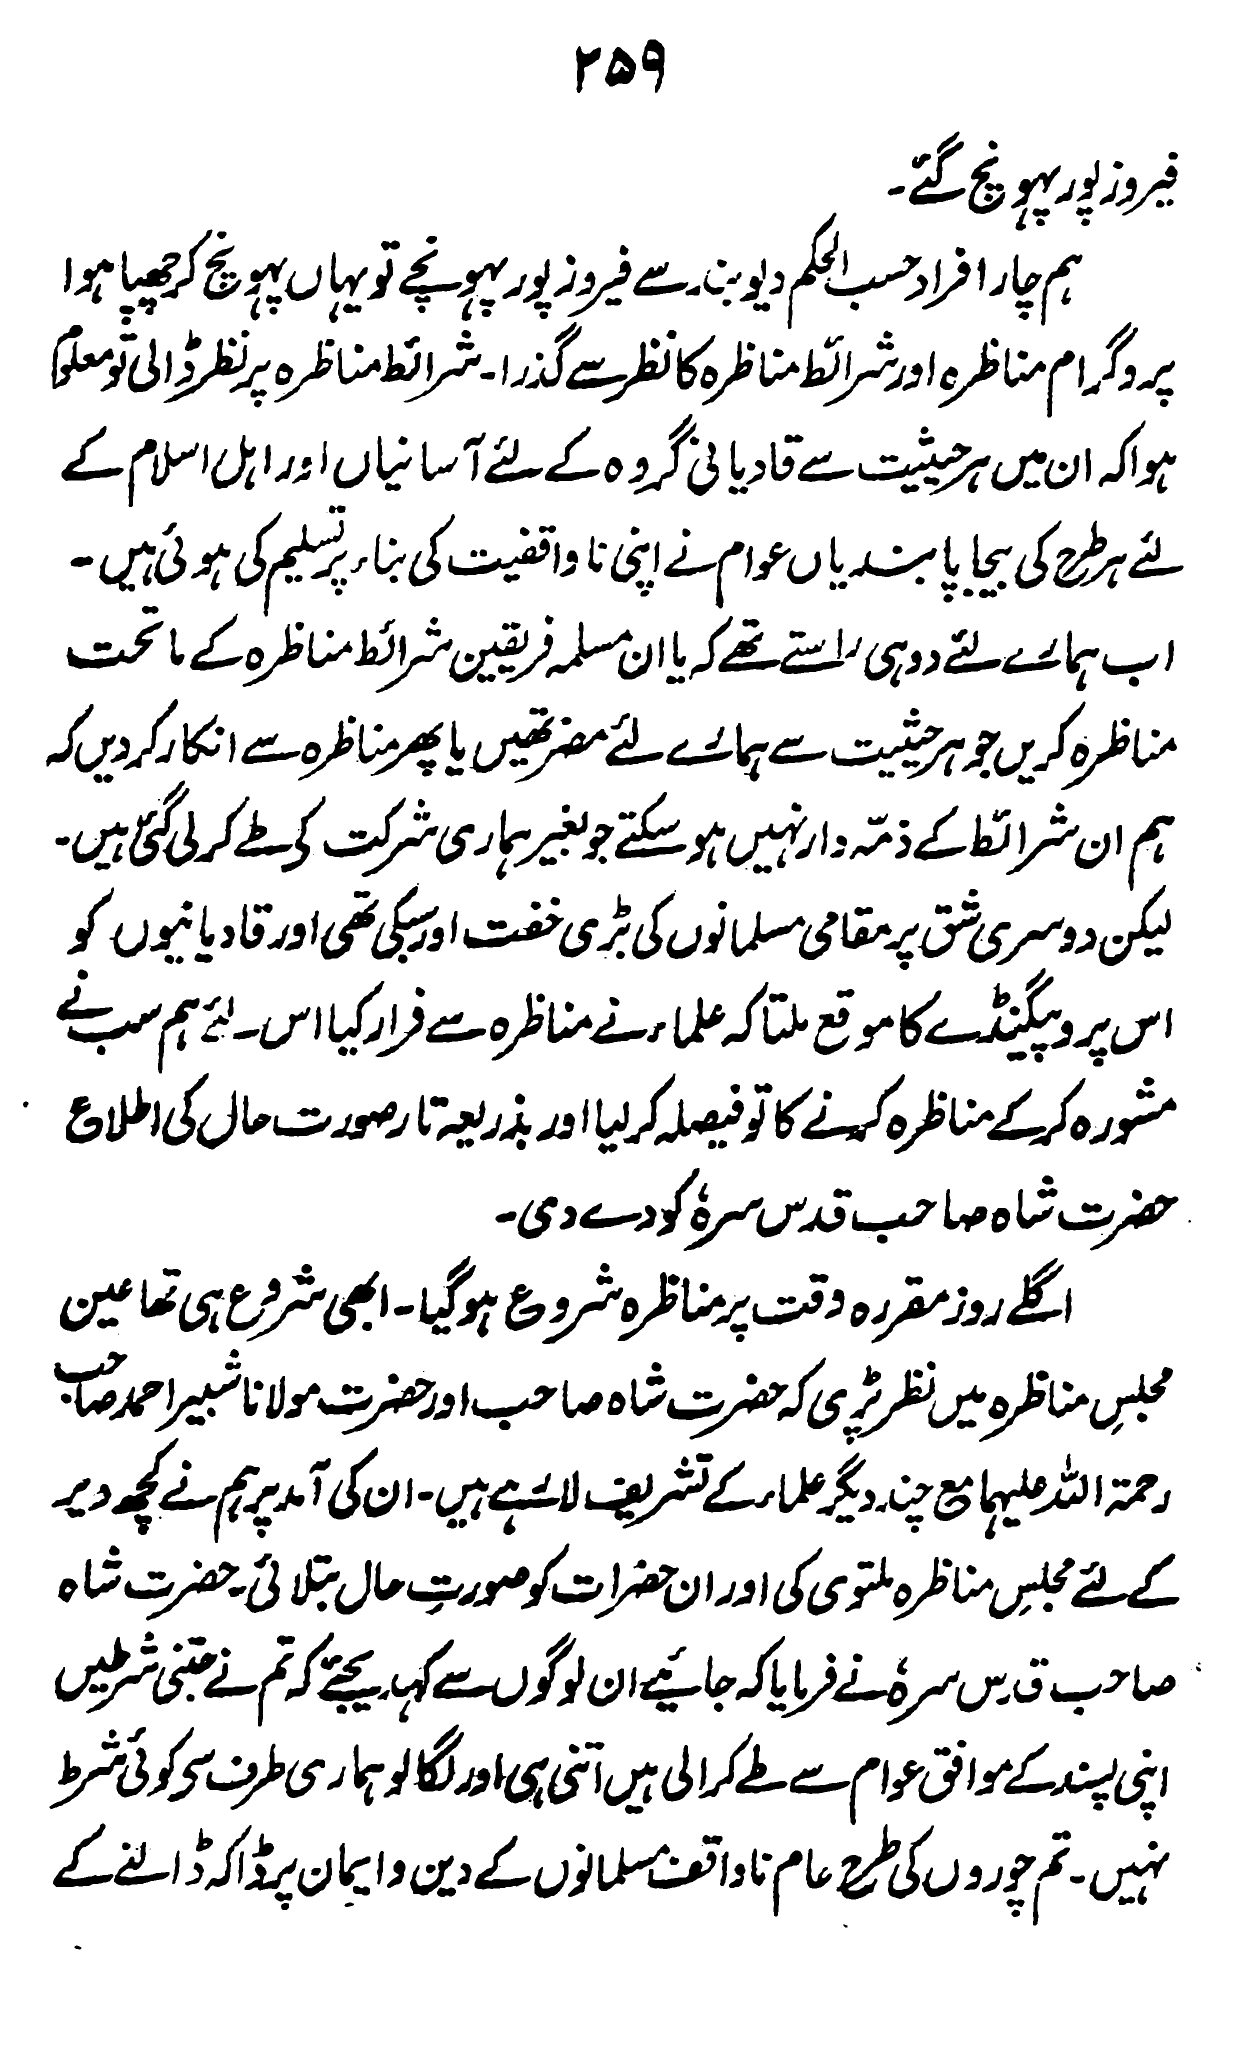 ۲۵۹
فیروز پور پہونچ گئے۔
ہم چار افراد حسب الحکم دیوبند سے فیروز پور پہونچے تو یہاں پہونچ کر چھپا ہوا
پروگرام مناظرہ اور شرائط مناظرہ کا نظر سے گذرا۔ شرائط مناظرہ پر نظر ڈالی تو معلوم
ہوا کہ ان میں ہر حیثیت سے قادیانی گروہ کے لئے آسانیاں اور اہل اسلام کے
لئے ہر طرح کی بیجا پابندیاں عوام نے اپنی ناواقفیت کی بناء پر تسلیم کی ہوئی ہیں۔
اب ہمارے لئے دو ہی راستے تھے کہ یا ان مسلمہ فریقین شرائط مناظرہ کے ماتحت
مناظرہ کریں جو ہر حیثیت سے ہمارے لئے مضر تھیں یا پھر مناظرہ سے انکار کر دیں کہ
ہم ان شرائط کے ذمّہ دار نہیں ہو سکتے جو بغیر ہماری شرکت کی طے کر لی گئی ہیں۔
لیکن دوسری شق پر مقامی مسلمانوں کی بڑی خفت اور سبکی تھی اور قادیانیوں کو
اس پروپیگنڈے کا موقع ملتا کہ علماء نے مناظرہ سے فرار کیا اس لئے ہم سب نے
مشورہ کر کے مناظرہ کرنے کا تو فیصلہ کر لیا اور بذریعہ تار صورت حال کی اطلاع
حضرت شاہ صاحب قدس سرہٗ کو دے دی۔
اگلے روز مقررہ وقت پر مناظرہ شروع ہو گیا۔ ابھی شروع ہی تھا عین
مجلسِ مناظرہ میں نظر پڑی کہ حضرت شاہ صاحب اور حضرت مولانا شبیر احمد صاحب
رحمۃ اللہ علیہما مع چند دیگر علماء کے تشریف لا رہے ہیں۔ ان کی آمد پر ہم نے کچھ دیر
کے لئے مجلسِ مناظرہ ملتوی کی اور ان حضرات کو صورتِ حال بتلائی۔ حضرت شاہ
صاحب قدس سرہٗ نے فرمایا کہ جائیے ان لوگوں سے کہدیجئے کہ تم نے جتنی شرطیں
اپنی پسند کے موافق عوام سے طے کرالی ہیں اتنی ہی اور لگا لو ہماری طرف سی کوئی شرط
نہیں۔ تم چوروں کی طرح عام ناواقف مسلمانوں کے دین و ایمان پر ڈاکہ ڈالنے کے